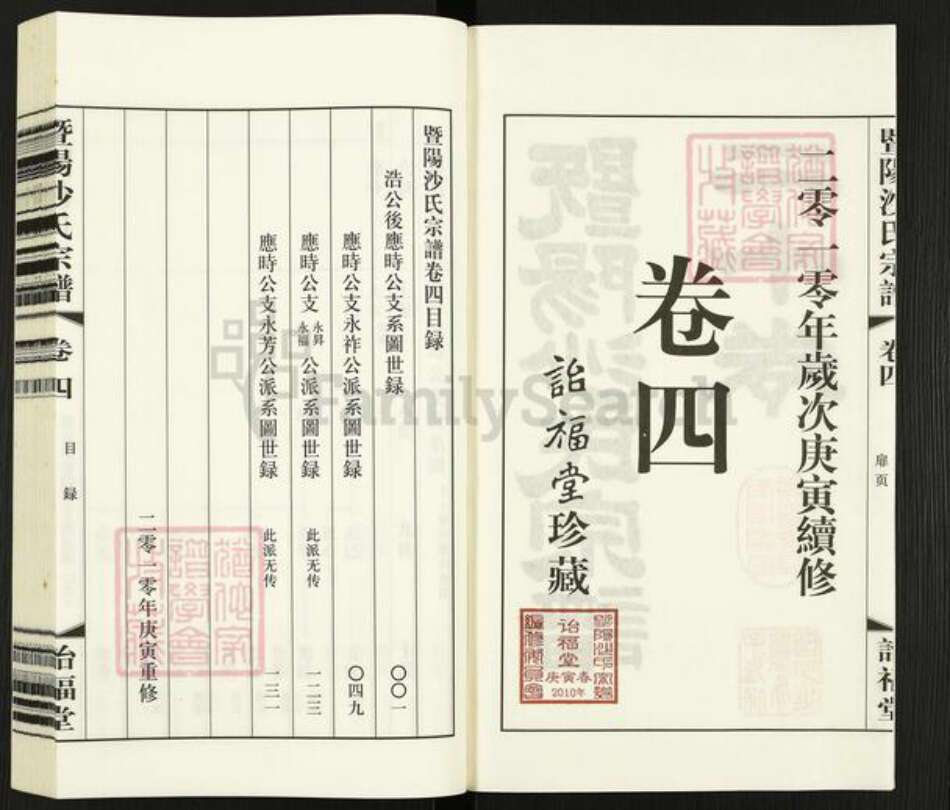 暨陽沙氏宗譜
卷四
扉页
詒福堂
二零一零年歲次庚寅續修
卷四
詒福堂珍藏
詒福堂
庚寅春
2010年
暨陽沙氏宗譜卷四目録
浩公後應時公支系圖世録 〇〇一
應時公支永祚公派系圖世録 〇四九
應時公支永昇永福公派系圖世録 此派无传 一二三
應時公支永芳公派系圖世録 此派无传 一三一
二零一零年庚寅重修
暨陽沙氏宗譜
卷四
目録
詒福堂
FamilySearch